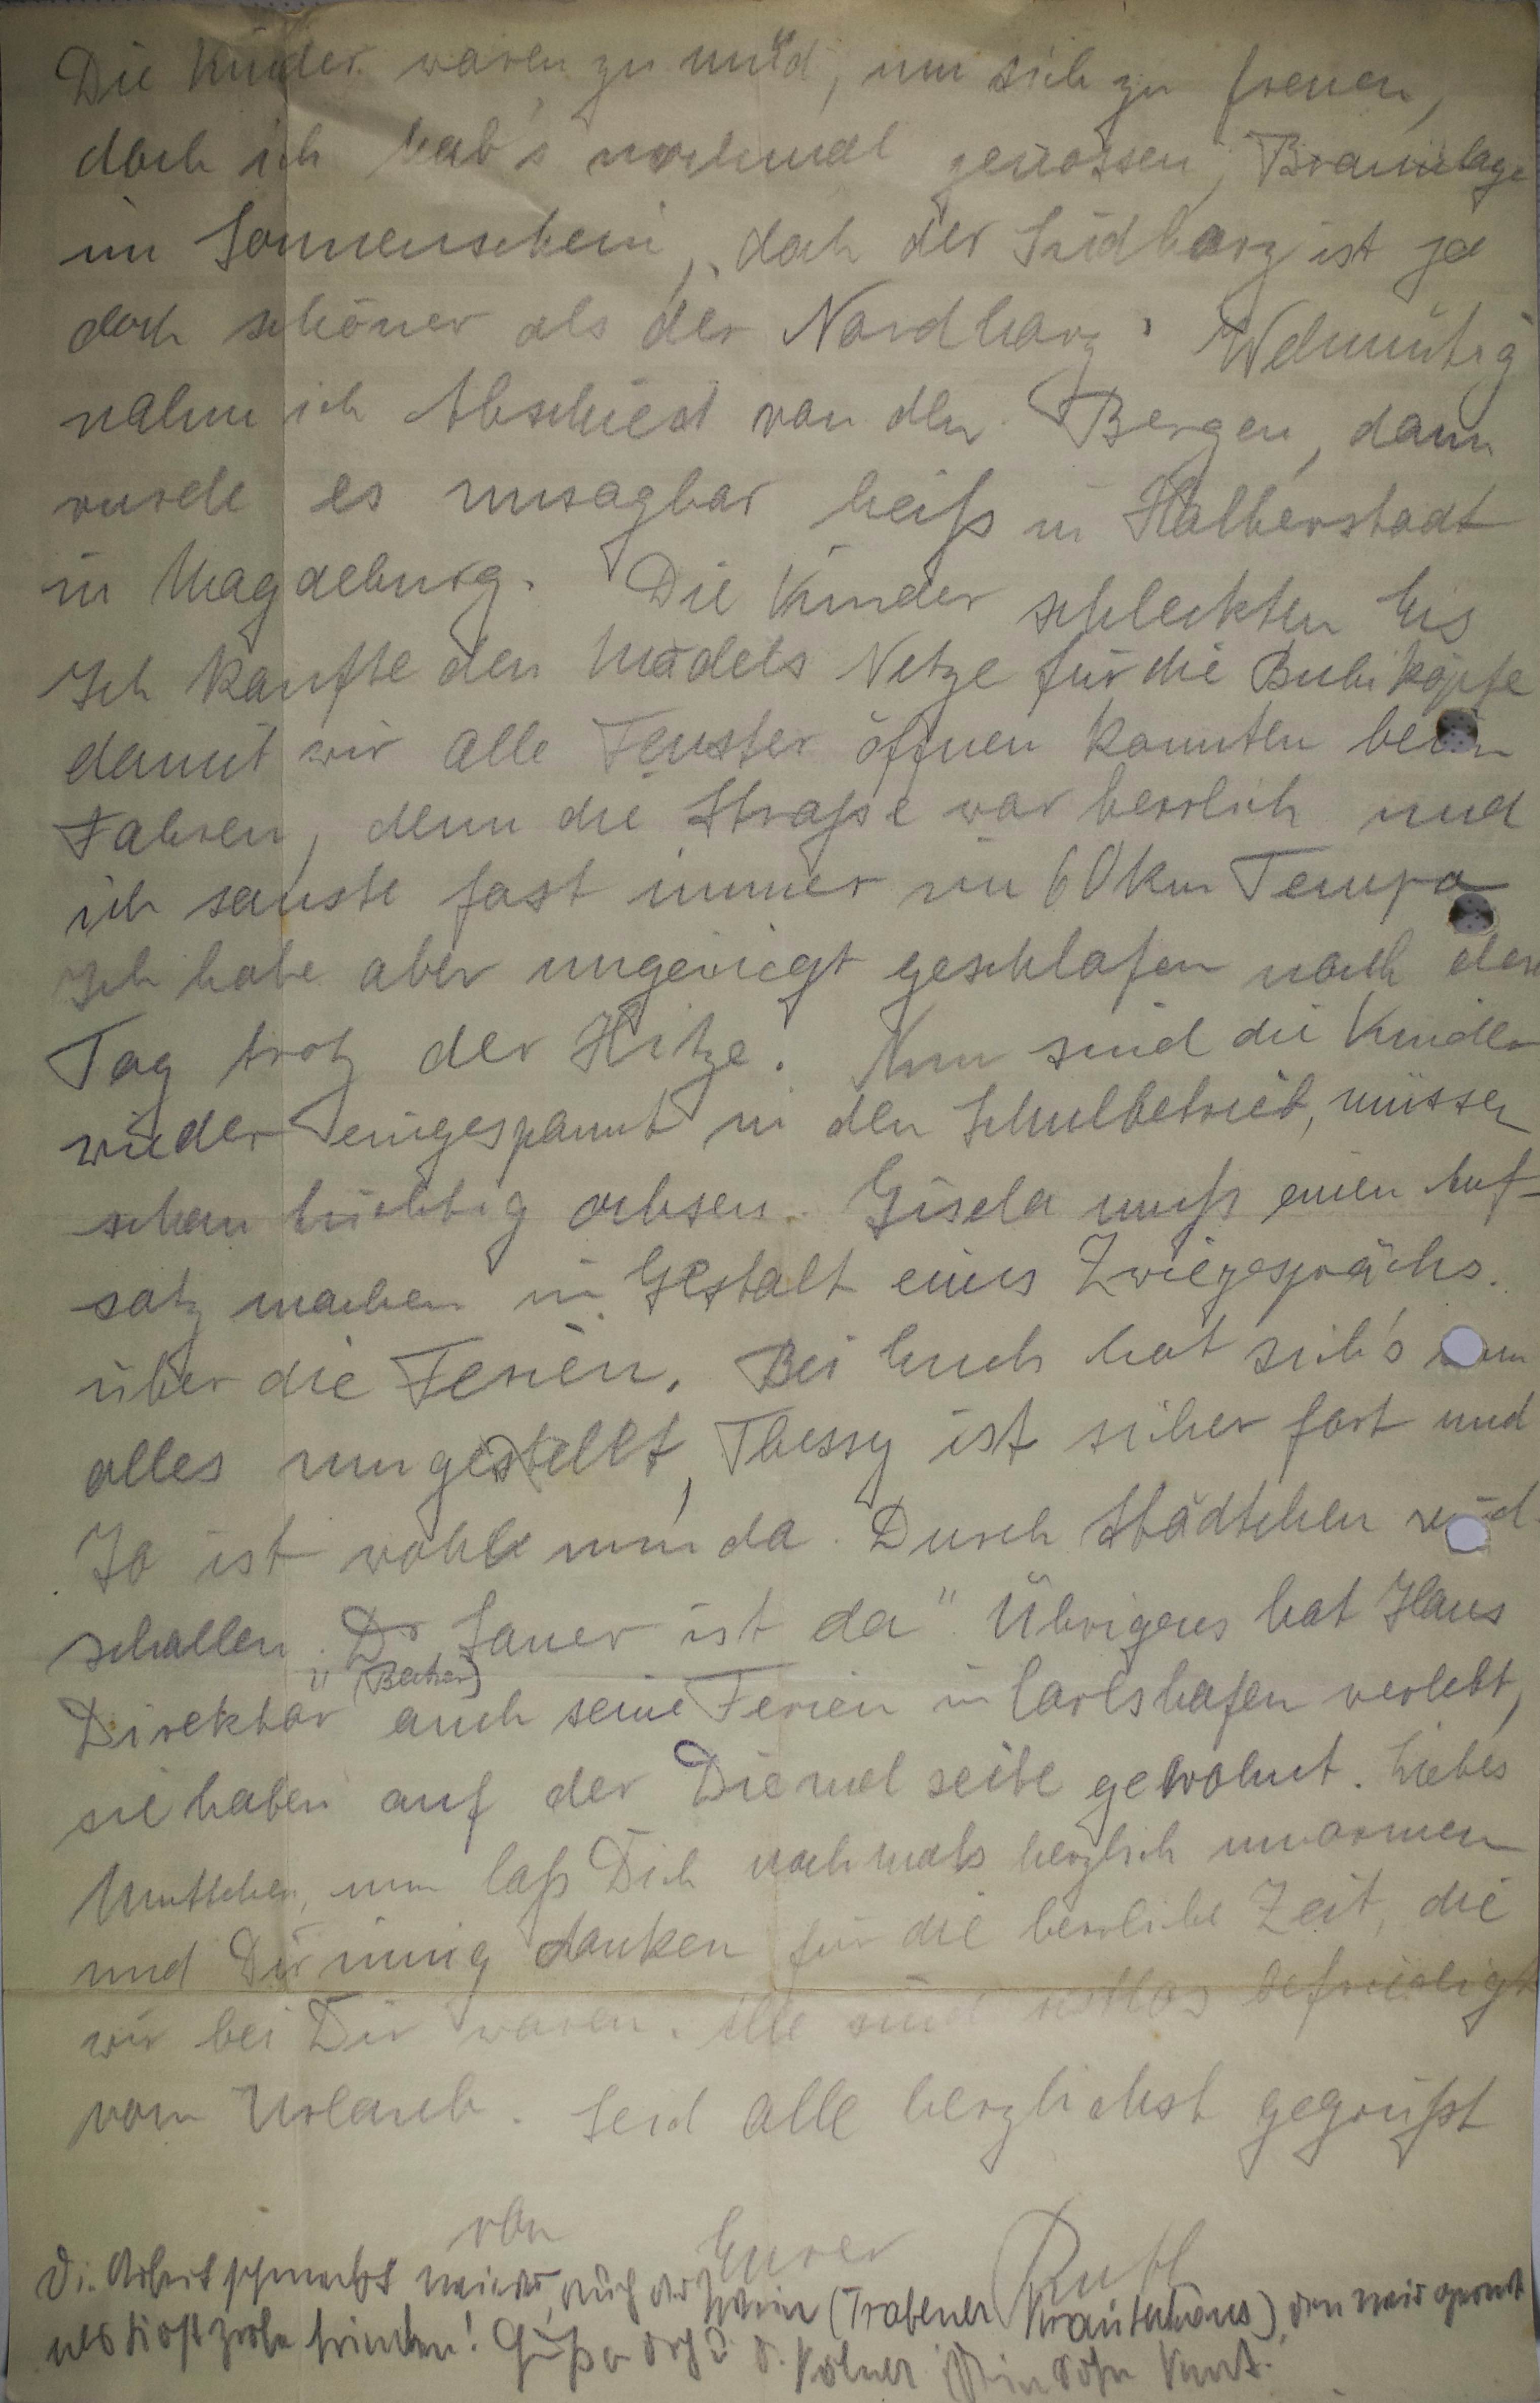 Die Kinder waren zu müd, um sich zu freuen,
doch ich hab's nochmal genossen, Braunlage
im Sonnenschein, doch der Südharz ist ja
doch schöner als der Nordharz. Wehmütig
nahm ich Abschied von den Bergen, dann
wurde es unsagbar heiß in Halberstadt
in Magdeburg. Die Kinder schleckten Eis
Ich kaufte den Mädels Netze für die Bubiköpfe
damit wir alle Fenster öffnen konnten beim
Fahren, denn die Straße war herrlich und
ich sauste fast immer im 60 km Tempo
Ich habe aber ungewiegt geschlafen nach dem
Tag trotz der Hitze. Nun sind die Kinder
wieder eingespannt in den Schulbetrieb, müssen
schon tüchtig ochsen. Gisela muß einen Auf-
satz machen in Gestalt eines Zwiegesprächs.
über die Ferien. Bei Euch hat sich's nun
alles umgestellt, Thessy ist sicher fort und
Jo ist wohl nun da. Durch Städtchen wird
schallen „Dr Sauer ist da". Übrigens hat Hans
Direktor (Becker) auch seine Ferien in Carlshafen verlebt,
sie haben auf der Diemelseite gewohnt. Liebes
Muttchen, nun laß Dich nochmals herzlich umarmen
und Dir innig danken für die herrliche Zeit, die
wir bei Dir waren. Alle sind restlos befriedigt
vom Urlaub. Seid alle herzlichst gegrüßt
von Eurer Ruth
Die Arbeit schmeckt wieder, auch der Wein (Trabener Kräuterhaus), den wir gerade
als Kostprobe trinken! Kölner Dein Sohn Kurt.